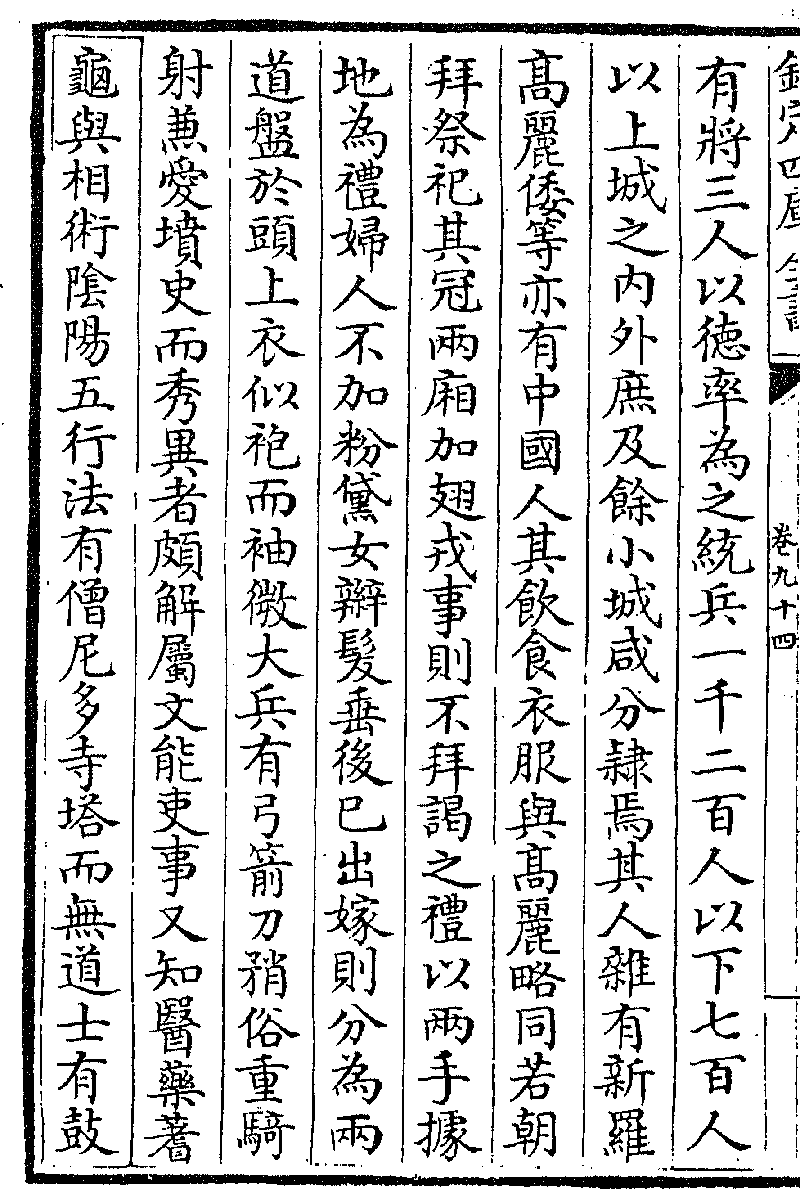 欽定四庫全書
卷九十四
有將三人以德率為之統兵一千二百人以下七百人
以上城之内外庶及餘小城咸分隸焉其人雜有新羅
髙麗倭等亦有中國人其飲食衣服與髙麗略同若朝
拜祭祀其冠兩廂加翅戎事則不拜謁之禮以兩手據
地為禮婦人不加粉黛女辮髮垂後已出嫁則分為兩
道盤於頭上衣似袍而袖微大兵有弓箭刀矟俗重騎
射兼愛墳史而秀異者頗解屬文能吏事又知醫藥蓍
龜與相術陰陽五行法有僧尼多寺塔而無道士有鼓